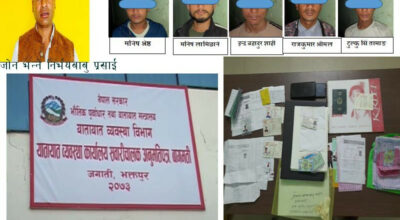 जोन भन्ने निर्भयबाबु प्रसाई
मनिष श्रेष्ठ
मनिष लामिछाने
इन्द्र बहादुर शाही
राजकुमार श्रीमल
टुल्कु सिं तामाङ
नेपाल सरकार
भौतिक पूर्वाधार तथा यातायात मन्त्रालय
यातायात व्यवस्था विभाग
यातायात व्यवस्था कार्यालय सवारीचालक अनुमतिपत्र वागमती
जगाती, भक्तपुर
२०७३